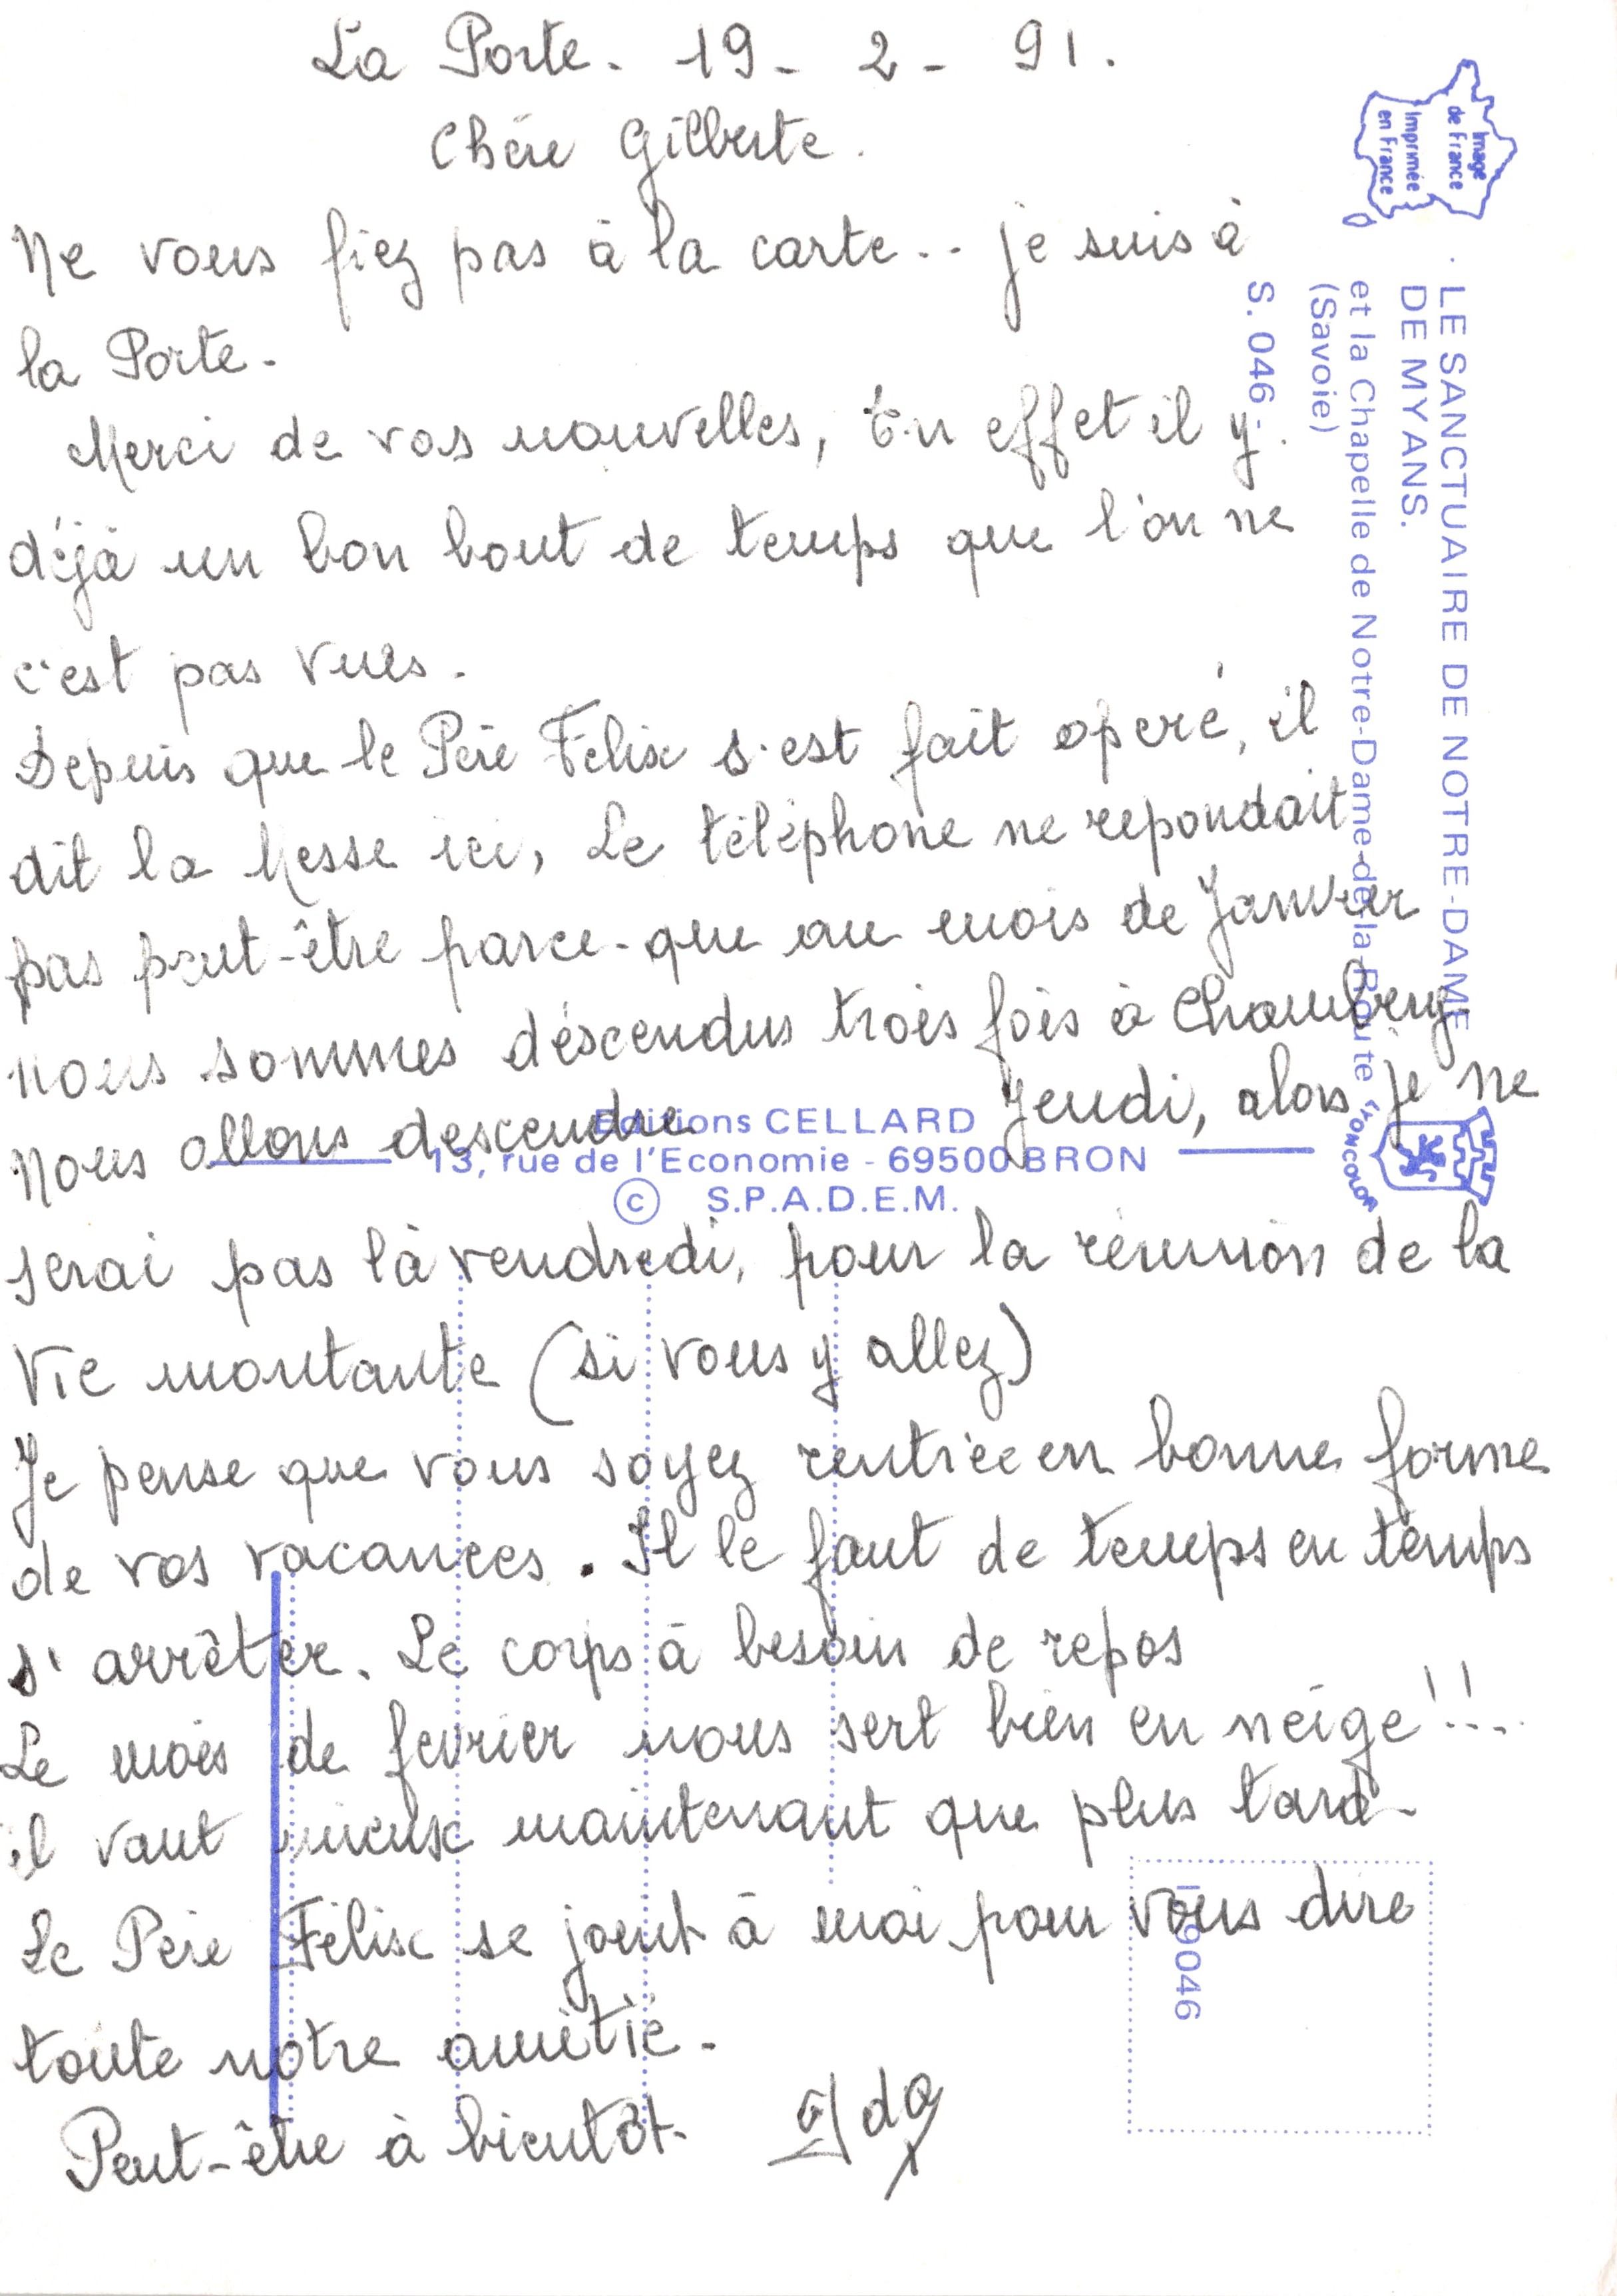 La Porte. 19 - 2 - 91.
Chère Gilberte.
Ne vous fiez pas à la carte... je suis à
la Porte.
Merci de vos nouvelles, En effet il y
déjà un bon bout de temps que l'on ne
c'est pas vues.
Depuis que le Père Félix s'est fait opéré, il
dit la Messe ici, Le téléphone ne repondait
pas peut-être parce-que au mois de Janvier
nous sommes déscendus trois fois à Chambery
nous allons descendre Jeudi, alors je ne
serai pas là vendredi, pour la réunion de la
Vie montante (si vous y allez)
Je pense que vous soyez rentrée en bonne forme
de vos vacances. Il le faut de temps en temps
s'arrêter. Le corps à besoin de repos
Le mois de fevrier nous sert bien en neige!!...
il vaut mieux maintenant que plus tard -
Le Père Félix se joint à moi pour vous dire
toute notre amitié -
Peut-être à bientôt.
Image
de France
Imprimée
en France
LE SANCTUAIRE DE NOTRE-DAME
DE MYANS.
et la Chapelle de Notre-Dame-de-la-Route
(Savoie)
S. 046 -
Editions CELLARD
13, rue de l'Economie - 69500 BRON
© S.P.A.D.E.M.
I 9046